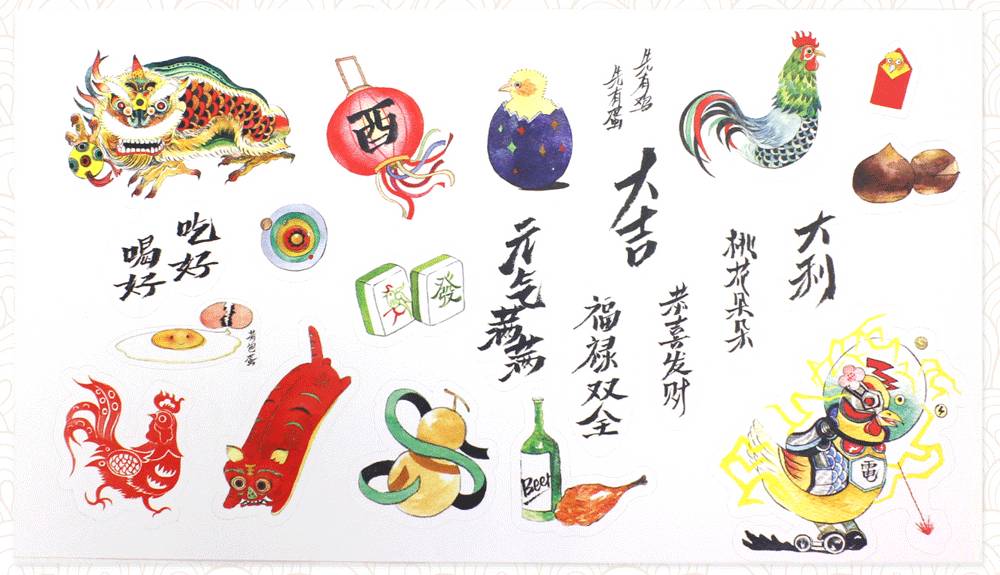 酉
先有鸡
先有蛋
吃好
喝好
大吉
大利
元气满满
桃花朵朵
恭喜发财
福禄双全
發
荷包蛋
Beer
電